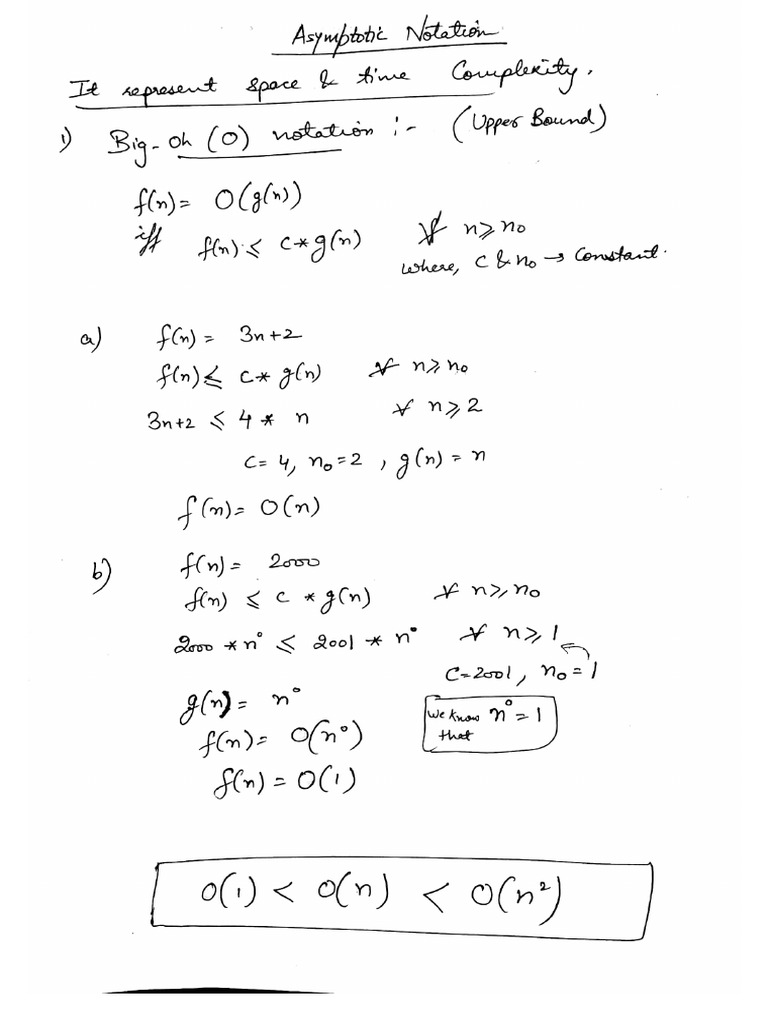 Asymptotic Notation
It represent space & time Complexity.
1) Big-Oh (O) notation :- (Upper Bound)
f(n) = O(g(n))
iff f(n) ≤ c * g(n) ∀ n ≥ n₀
where, c & n₀ → Constant.
a) f(n) = 3n+2
f(n) ≤ c * g(n) ∀ n ≥ n₀
3n+2 ≤ 4 * n ∀ n ≥ 2
c = 4, n₀ = 2 , g(n) = n
f(n) = O(n)
b) f(n) = 2000
f(n) ≤ c * g(n) ∀ n ≥ n₀
2000 * n⁰ ≤ 2001 * n⁰ ∀ n ≥ 1
c = 2001, n₀ = 1
g(n) = n⁰
We know n⁰ = 1
that
f(n) = O(n⁰)
f(n) = O(1)
O(1) < O(n) < O(n²)